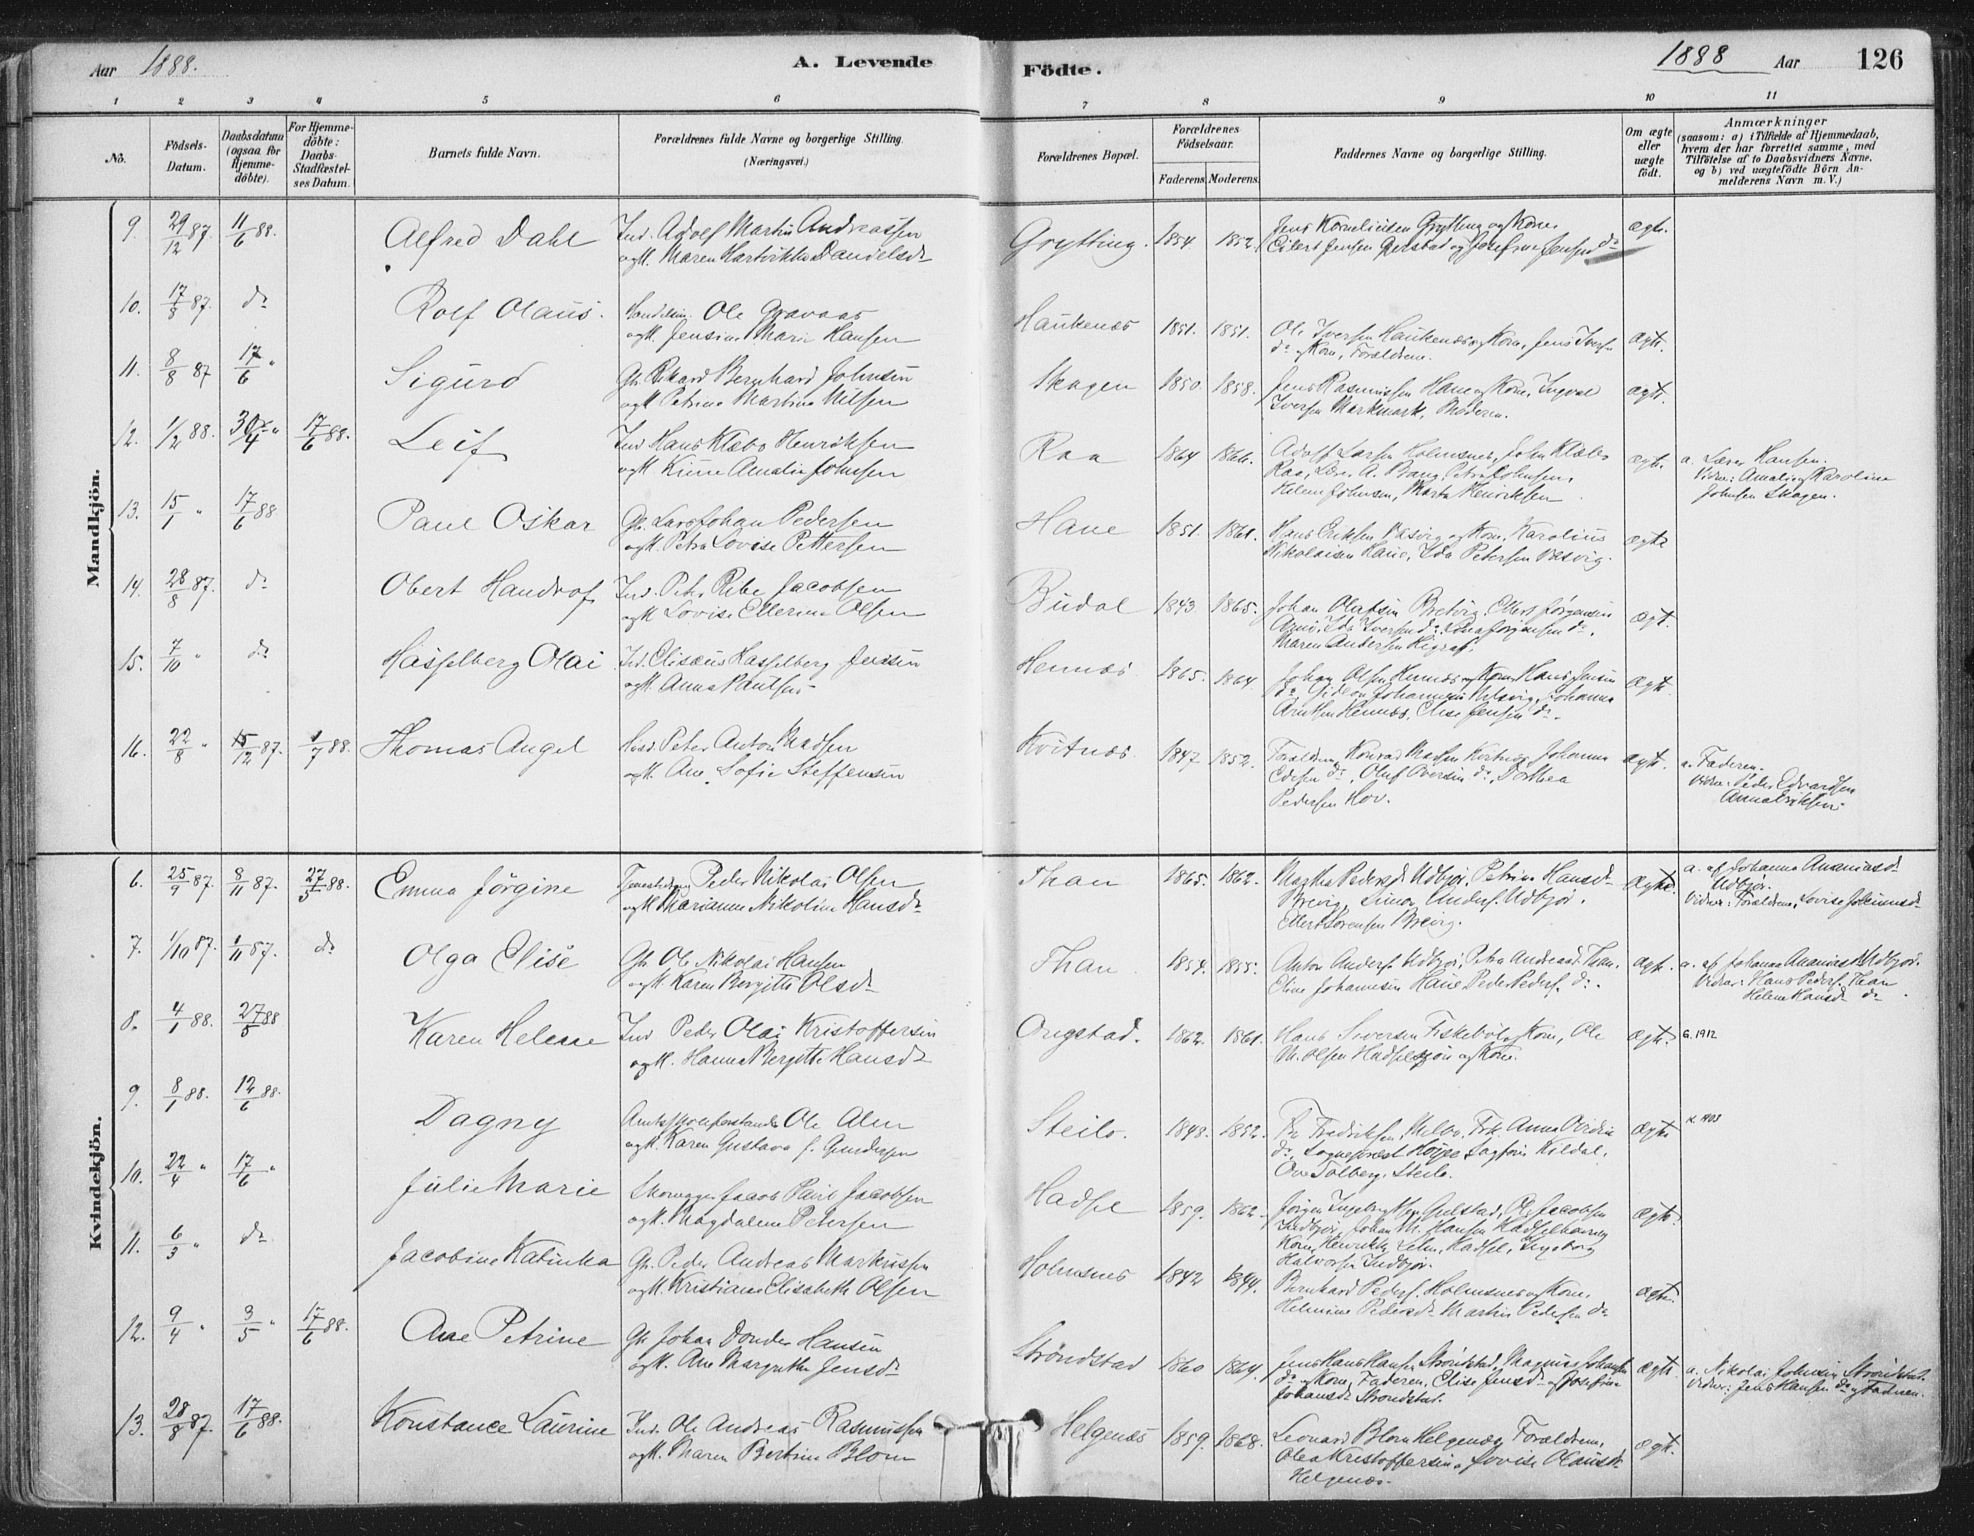 Aar 1888.
A. Levende
Födte.
1888 Aar 126
1 2 3 4 5 6 7 8 9 10 11
No.
Födsels-
Datum.
Daabsdatum
(ogsaa for
Hjemme-
döbte).
For Hjemme-
döbte:
Daabs-
Stadfæstel-
ses Datum.
Barnets fulde Navn.
Forældrenes fulde Navne og borgerlige Stilling.
(Næringsvei.)
Forældrenes Bopæl.
Forældrenes
Födselsaar.
Faderens. Moderens.
Faddernes Navne og borgerlige Stilling.
Om ægte
eller
uægte
födt.
Anmærkninger
(saasom: a) i Tilfælde af Hjemmedaab,
hvem der har forrettet samme, med
Tilföielse af to Daabsvidners Navne,
og b) ved uægtefödte Börn An-
melderens Navn m. V.)
Mandkjön.
9. 29/12 87. 11/6 88. Alfred Dahl Ind. Adolf Martin Andreassen
og H. Maren Hartvikka Danielsdr
Grytting. 1854 1852. Jens Korneliusen Grytting og Kone
Eilert Jensen Gjelstad og Josefine Jensen do ægte.
10. 17/8 87. do Rolf Olaus. Ole Gravaas
og H. Jensine Marie Hansen
Haukenæs 1851. 1851. Ole Iversen Haukenæs og Kone, Jens Iversen
do og Kone, Forældrene. ægt.
11. 8/8 87 17/6 " Sigurd Gb. Rikard Bernhard Johnsen
og H. Petrine Martine Nilsen
Skagen 1850. 1858. Jens Rasmussen Hane og Kone, Ingval
Iversen Markmark, Moderen. ægt.
12. 1/2 88. 30/4 " 17/6 88. Leif Ind Hans Klæbo Henriksen
og H. Amalie Johnsen
Raa 1864 1866. Adolf Larsen Holmsnes, John Klæbo
Raa, A. Bang, Petra Johnsen,
Helene Johnsen, Marta Henriksen ægt. a. Lærer Hansen.
Vidner: Amalie og Karoline
Johnsen Skagen.
13. 15/1 " 17/6 88 Paul Oskar Gb. Lars Johan Pedersen
og H. Petra Lovise Pettersen
Hane 1851 1861. Hans Eriksen og Kone, Karolius
Nikolaisen Hane, Ida Petersen ægte
14. 28/8 87. do Obert Handrof Ind. Peter Ribe Jacobsen
og H. Lovise Ellerine Olsen
Budal 1843 1865. Johan Olufsen Bretvig, Ellert Jørgensen
Iversen do, Jørgensen do,
Maren Andersen ægt.
15. 7/10 " do Hasselberg Olai Ind. Elisæus Hasselberg Jenssen
og H. Anna Paulsen
Hennæs 1865. 1864. Johan Olsen Hennæs og Kone, Hans Jensen
do, Gideon Johannesen, Johanna
Arntsen Hennæs, Elise Jensen do. ægt.
16. 22/8 " 15/12 87. 1/7 88. Thomas Angel Peter Anton Madsen
og H. Ane Sofie Steffensen
Kvitnæs 1847 1852. Forældrene, Konrad Madsen Kvitnes, Johanna
do, Oluf Oversen do, Dorthea
Pedersen Hov. ægt. a. Faderen.
Vidner: Peder Edvardsen
Anna Eriksen.
Kvindekjön.
6. 25/9 87. 8/11 87. 27/5 88. Emma Jörgine Peder Nikolai Olsen
og H. Marianne Nikoline Hansdr
Than 1865. 1862. Pedersd Udbjør, Petrine Hansdr
Breivig, Simon Anders. Udbjør,
Ellert Sørensen Breivig. ægte. a. af Johanna Ananiasd.
Udbjør.
Vidner: Forældrene, Lovise
7. 1/10 87. 1/11 87. do Olga Elise Gb. Ole Nikolai Hansen
og H. Karen Bergitte Olsdr
Than 1854. 1855. Anton Anders. Udbjør, Petra Andreasd. Than,
Eline Johannesen Hane, Peder Peders. do. ægt. a. af Johanna Ananiasd. Udbjør.
Vidner: Hans Peders. Than
Helene Hansd. do.
8. 4/1 88. 27/5 88 Karen Helene Ind Peder Olai Kristoffersen
og H. Hanna Bergitte Hansdr
Ongstad. 1862. 1861. Hans Siversen Fiskebøl og Kone, Ole
M. Olsen og Kone. ægt. G. 1912
9. 8/1 88. 12/6 88. Dagny Ole Alm
og H. Karen Gustava f. Gundersen
Steilo. 1848. 1852. Fr Fredriksen, Melbo, Frk. Anna
do, Sogneprest Høyer, Kildal,
Ove Tolberg, Steilo. ægte 1903
10. 22/4 " 17/6 " Julie Marie Skomager Jacob Jacobsen
og H. Magdalene Petersen
Hadsel 1859. 1862. Jørgen Ingebrigtsen Gulstad, Ole Jacobsen
Indbjør, Johan M. Hansen Hadselhavn og
Kone, Hadsel, Ingeborg
Halvorsen Indbjør. ægte.
11. 6/3 " do Jacobine Katinka Gb. Peder Andreas Markussen
og H. Kristianne Elisabeth Olsen
Holmsnes 1842 1844. Bernhard Peders. Holmsnes og Kone,
Helmine Pedersdr, Martin Pedersen do ægt.
12. 9/4 " 3/5 " 17/6 88. Ane Petrine Gb Johan Hansen
og H. Ane Margrethe Jensdr
Ströndstad 1860 1864. Jens Hans Hansen Ströndstad, Magnus Johansen
do og Kone, Faderen, Elise Jensdr og Josefine
Johansdr Ströndstad. ægt. a. Nikolai Johnsen Ströndstad.
Vidner: Jens Hansen do og Faderen.
13. 28/8 87. 17/6 88. Konstance Laurine Ind. Ole Andreas Rasmussen
og H. Maren Bertine Blom
Helgenæs 1859. 1868. Leonard Blom Helgenæs, Forældrene,
Olea Kristoffersen, Lovise
Helgenæs. ægt.